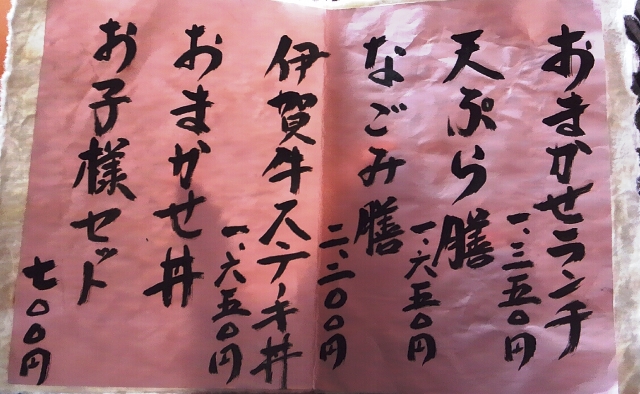 おまかせランチ
一、三五〇円
天ぷら膳
一、六五〇円
なごみ膳
二、二〇〇円
伊賀牛ステーキ丼
一、六五〇円
おまかせ丼
お子様セット
七〇〇円